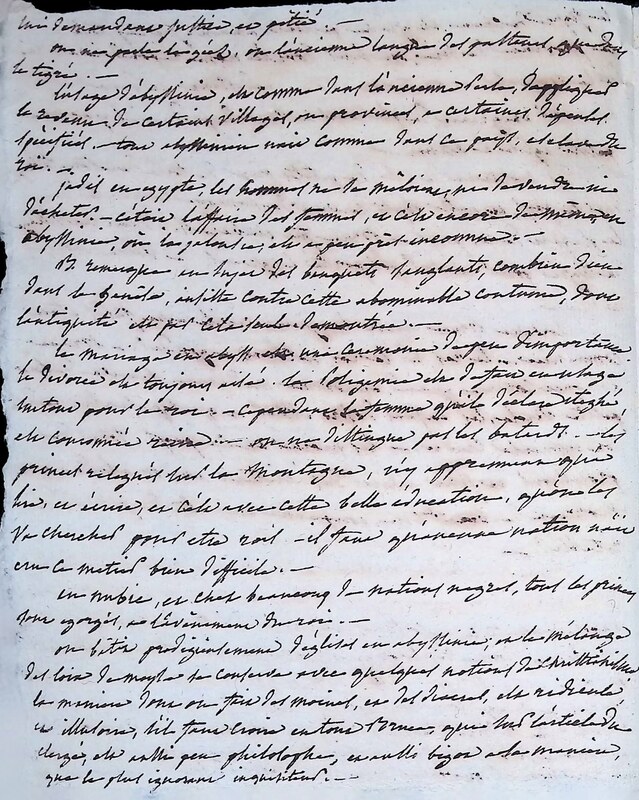 lui demandant justice, et pitié. —
on ne parle le geez, ou l'ancienne langue des pasteurs, que dans
le tigré. —
l'usage d'abyssinie, est comme dans l'ancienne Perse, d'appliquer
le revenu de certains villages, ou provinces, a certaines dépenses
spécifiés. — tout abyssinien nait comme dans ce pays, esclave du
roi. —
jadis en egypte, les hommes ne se mêloient, ni de vendre ni
d'acheter — c'étoit l'affaire des femmes, et cela encore de même en
abyssinie, ou la jalousie, est a peu près inconnue. —
B. remarque au sujet des banquets sanglants, combien dieu
dans la genèse, insiste contre cette abominable coutume, dont
l'antiquité est par cela seule démontrée. —
le mariage en abyss. est une ceremonie de peu d'importance
le divorce est toujours aisé. la Poligamie est de fait en usage
surtout pour le roi — cependant la femme qu'il déclare iteghé
est couronnée reine. — on ne distingue pas les batards — les
princes relegués sur la montagne, n'y apprennent qu'à
lire, et écrire, et c'est avec cette belle éducation, qu'on les
va chercher pour etre rois — il faut qu'aucune nation n'ait
cru ce metier bien difficile. —
en nubie, et chez beaucoup de nations negres, tous les princes
sont egorgés, a l'évènement du roi. —
on bâtit prodigieusement d'églises en abyssinie, ou le mélange
des loix de moyse se conserve avec quelques notions de christianisme
la maniere dont on fait des moines, et des diacres, est ridicule
et illusoire, s'il faut croire en tout Bruce, qui sur l'article du
clergé, est aussi peu philosophe, et aussi bigot a sa maniere,
que le plus ignorant inquisiteur. —